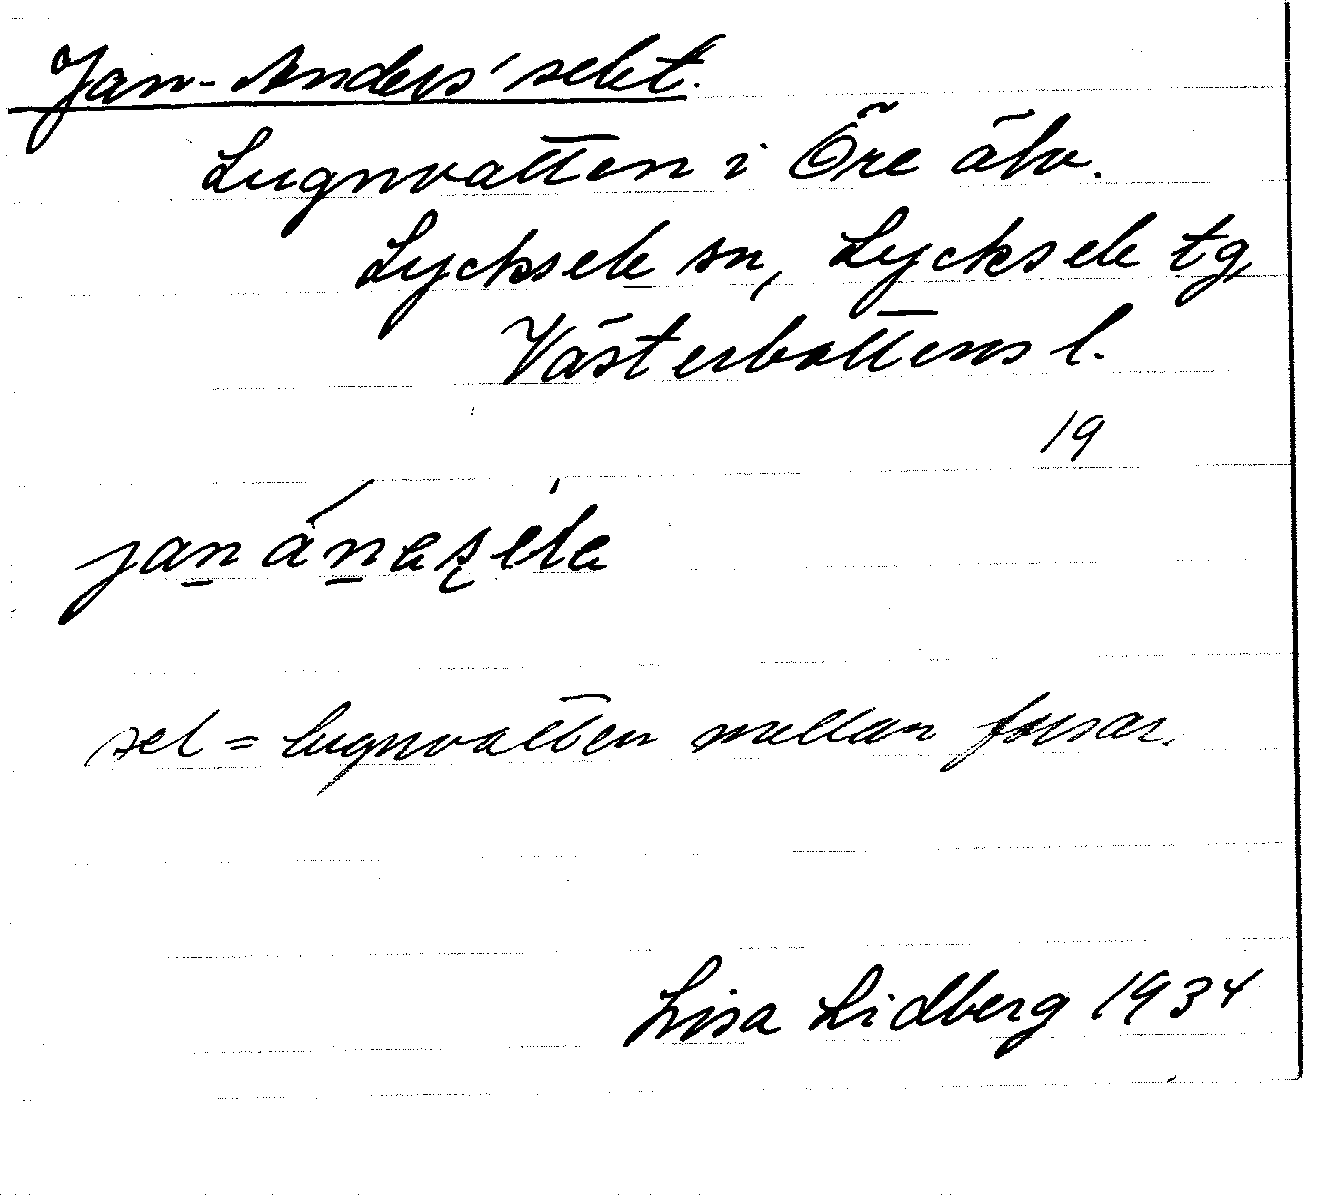 Jan-Anders' selet.
Lugnvatten i Öre älv.
Lycksele sn, Lycksele tg
Västerbottens l.
19
sel = lugnvatten mellan forsar.
Lisa Lidberg 1934